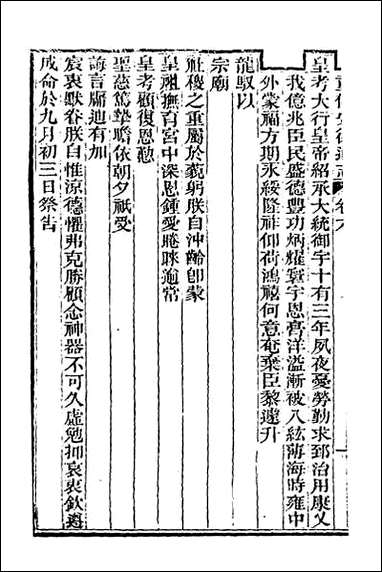 皇考大行皇帝紹承大統御宇十有三年夙夜憂勞勤求郅治用康乂
我億兆臣民盛德豐功炳燿寰宇恩膏洋溢漸被八紘薄海時雍中
外蒙福方期永綏隆祚仰荷鴻禧何意奄棄臣黎遽升
龍馭以
宗廟
社稷之重屬於藐躬朕自沖齡卽蒙
皇祖撫育宮中深恩鍾愛睠睞逾常
皇考顧復恩懃
聖慈篤摯瞻依朝夕祇受
誨言牖迪有加
宸衷默眷朕自惟涼德懼弗克勝顧念神器不可久虛勉抑哀衷欽遵
成命於九月初三日祭告